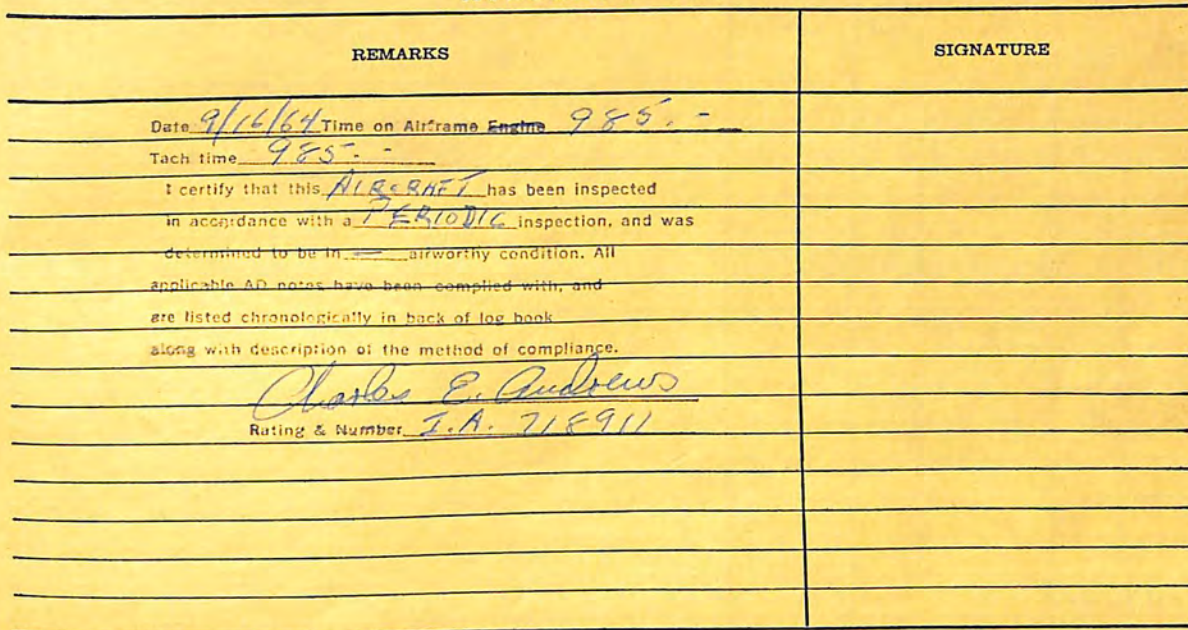 REMARKS
SIGNATURE
Date 9/16/64 Time on Airframe Engine 985. -
Tach time 985. -
I certify that this AIRCRAFT has been inspected
in accordance with a PERIODIC inspection, and was
determined to be in — airworthy condition. All
applicable AD notes have been complied with, and
are listed chronologically in back of log book
along with description of the method of compliance.
Charles E. Andrews
Rating & Number I.A. 718911